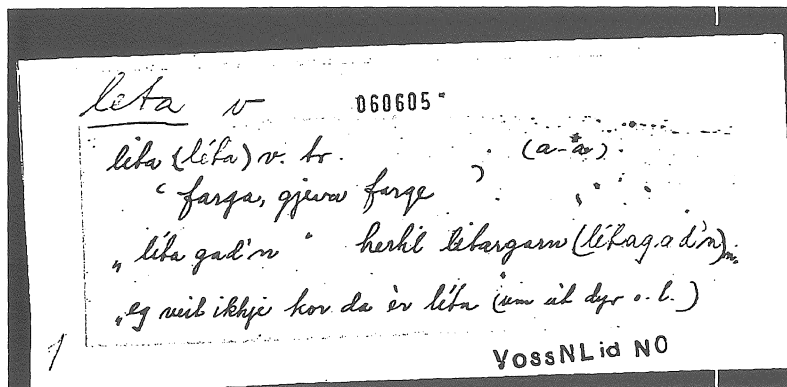 leta v 060605
lita (léta) v. tr. (a-a).
" farga, gjeva farge "
„ léta gad'n " hertil litargarn (létag.ad'n) n.
„ eg veit ikhje kor da èr léta (um eit dyr o. l.)
1
VossNLid NO